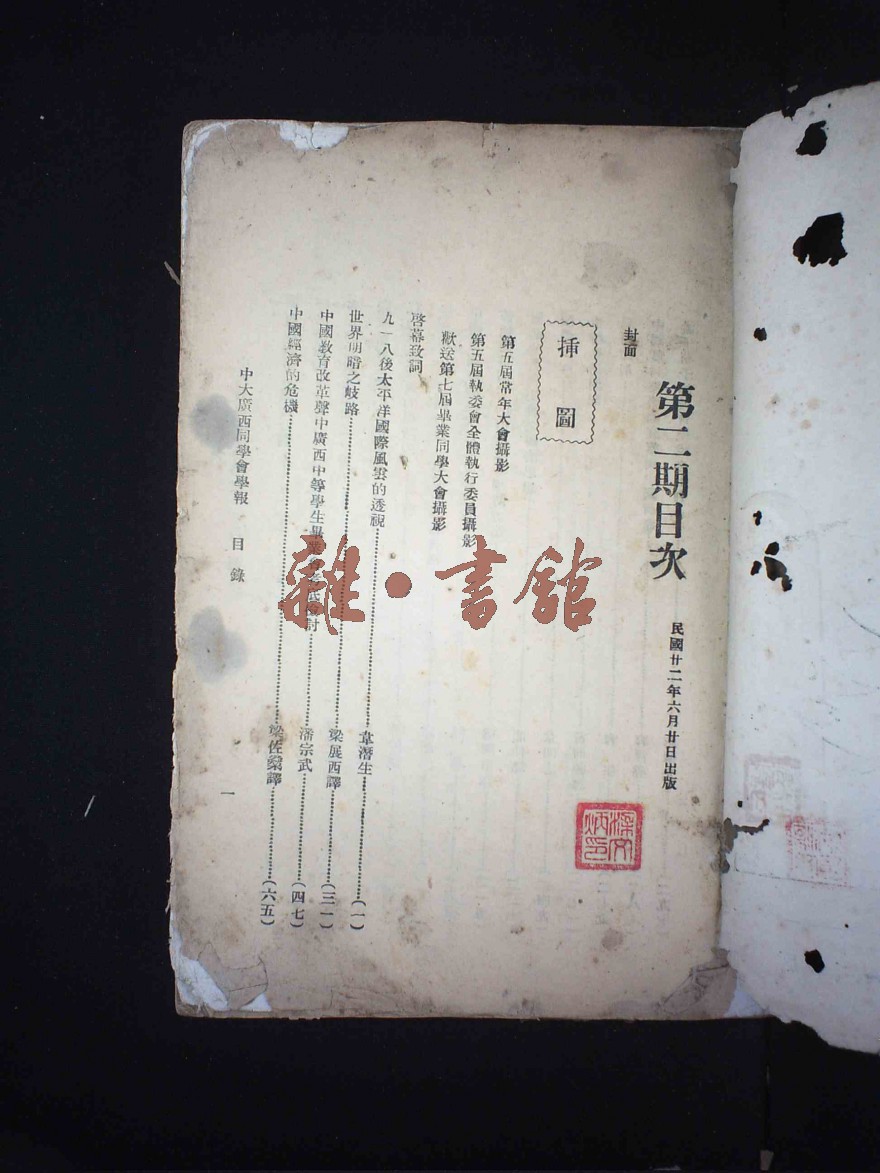 第二期目次
民國廿二年六月廿日出版
封面
挿圖
第五屆常年大會攝影
第五屆執委會全體執行委員攝影
歡送第七屆畢業同學大會攝影
啓幕致詞
九一八後太平洋國際風雲的透視 韋潛生 (一)
世界明暗之岐路 梁展西譯 (三一)
中國教育改革聲中廣西中等學生畢業 討 潘宗武 (四七)
中國經濟的危機 梁佐燊譯 (六五)
中大廣西同學會學報 目錄
一
雜·書館